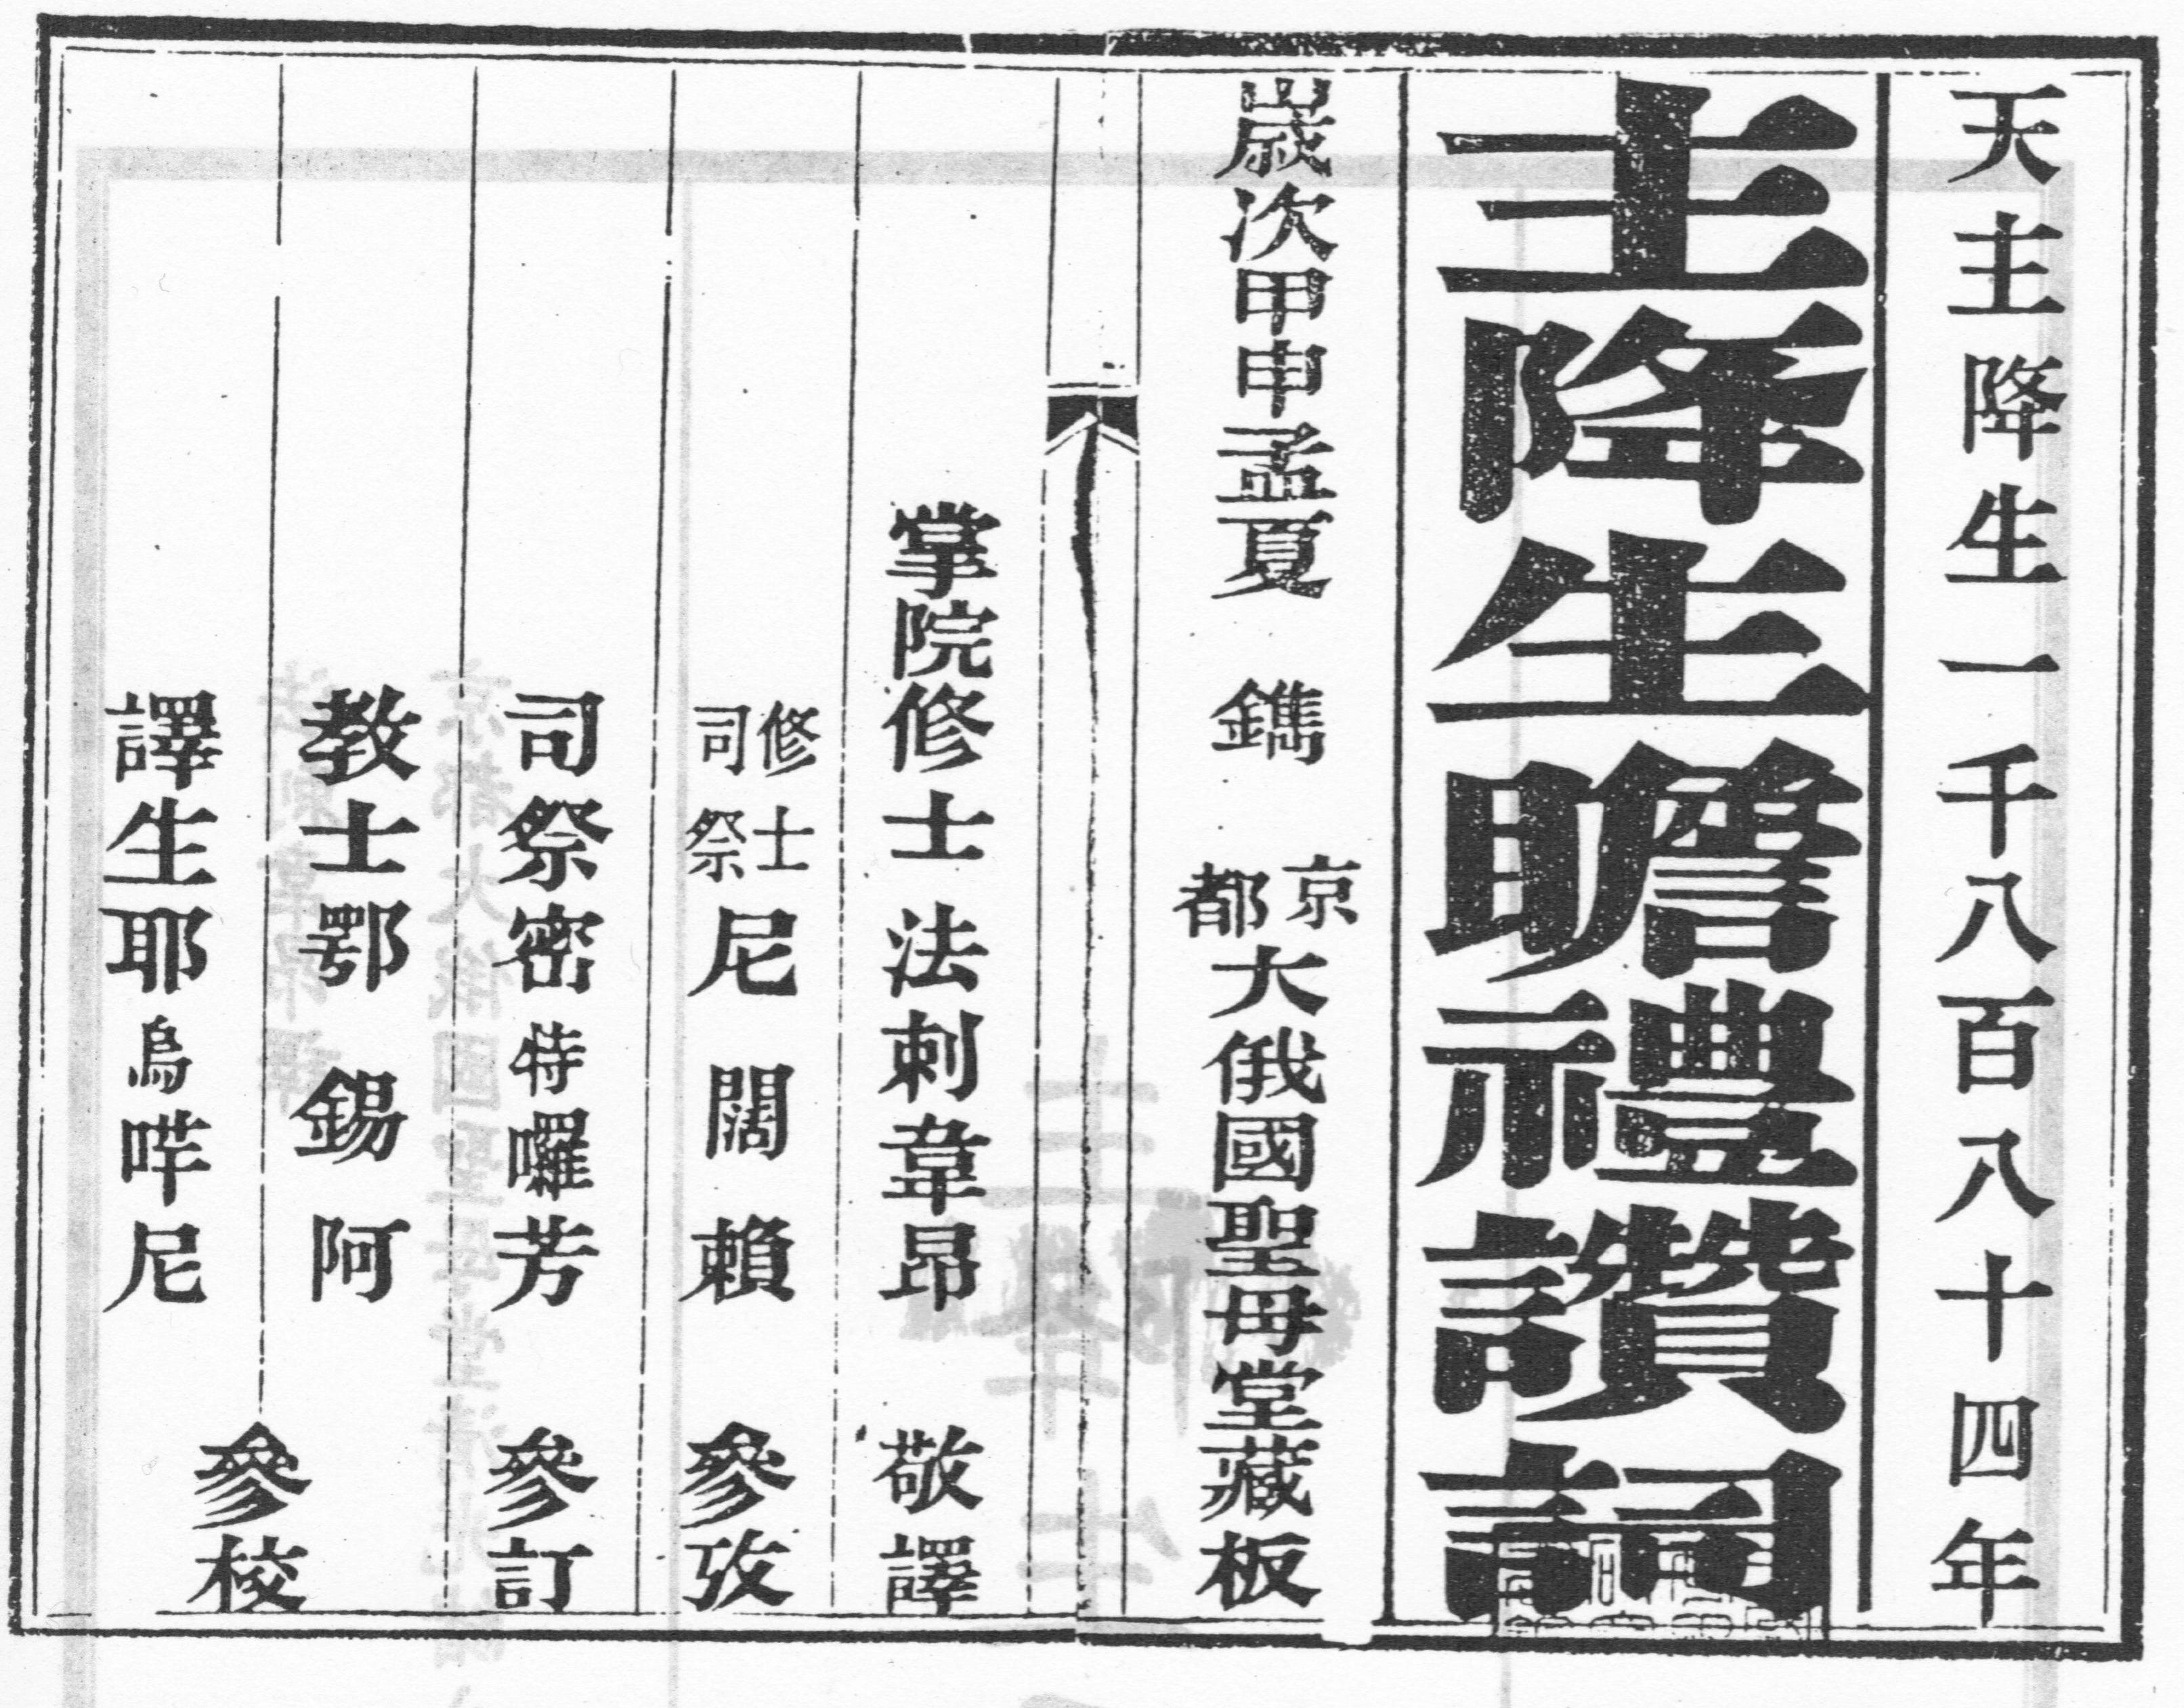 天主降生一千八百八十四年
主降生瞻禮讚詞
歲次甲申孟夏 鐫 京都大俄國聖母堂藏板
掌院修士法剌韋昂 敬譯
修士司祭尼闊賴 參攷
司祭密特囉芳 參訂
教士鄂錫阿
譯生耶烏哶尼
參校